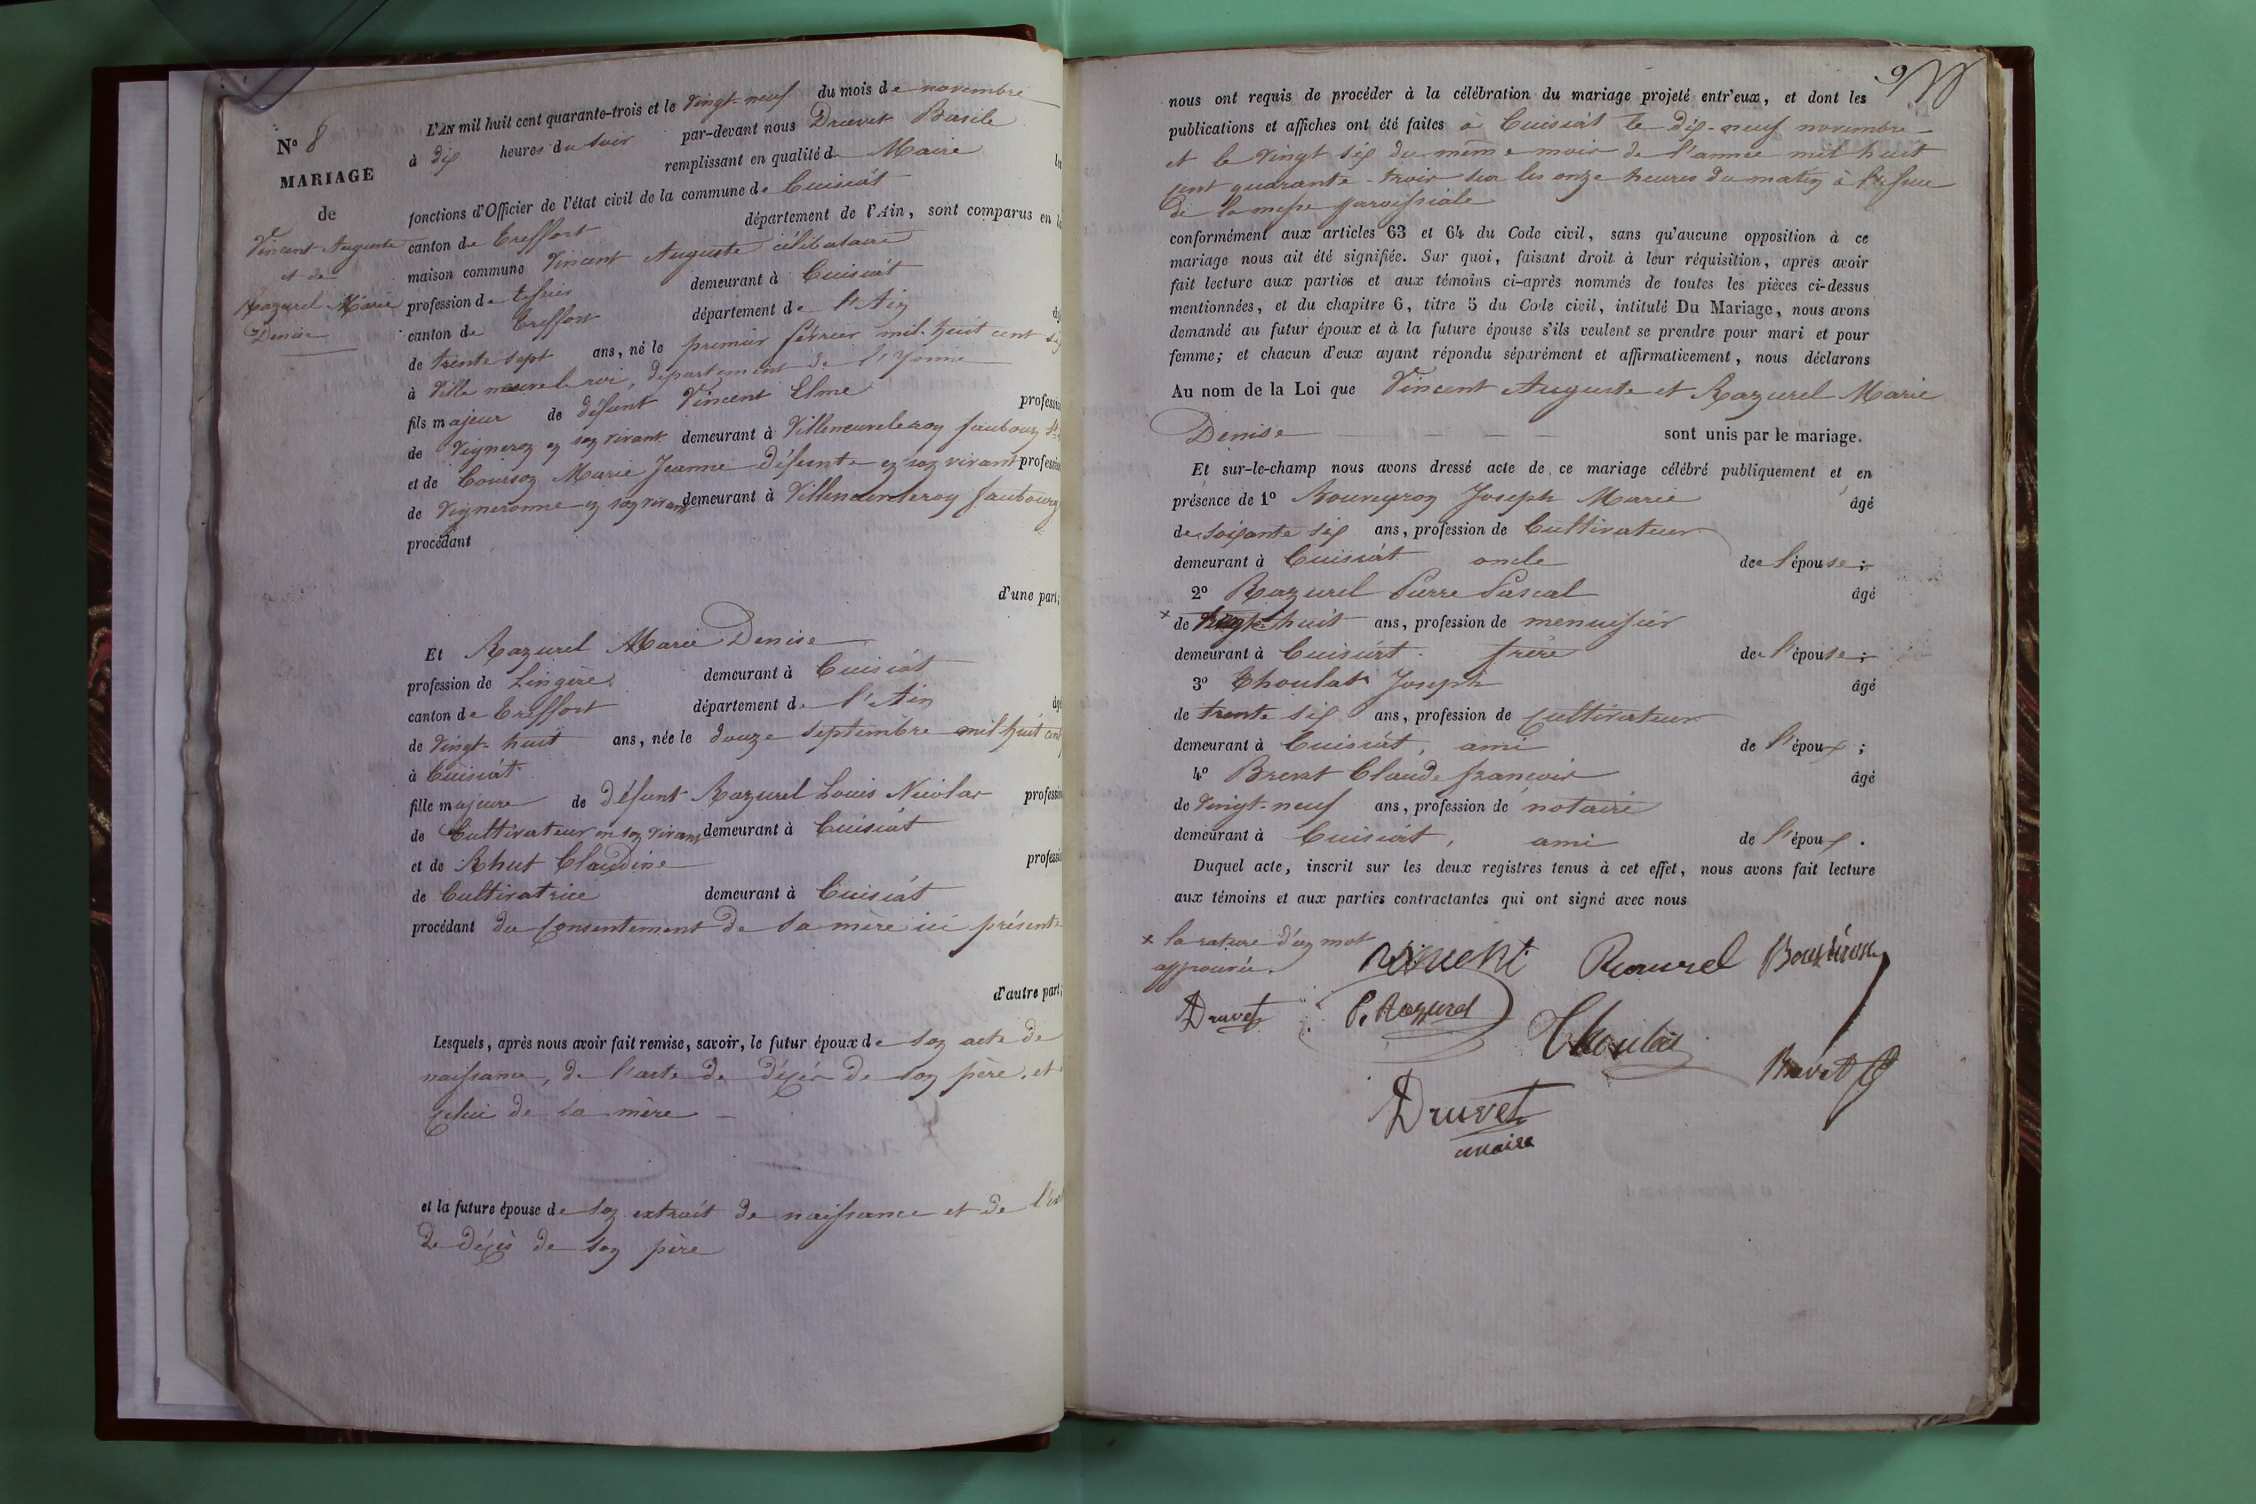 N° 8
MARIAGE
de
Vincent Auguste
et de
Razurel Marie
Denise
L'AN mil huit cent quarante-trois et le vingt-neuf du mois de novembre
à dix heures du soir par-devant nous Druvet Basile
remplissant en qualité de Maire les
fonctions d'Officier de l'état civil de la commune de Cuisiat
canton de Treffort département de l'Ain, sont comparus en la
maison commune Vincent Auguste célibataire
profession de demeurant à Cuisiat
canton de Treffort département de l'Ain âgé
de trente sept ans, né le premier février mil huit cent six
à Villeneuve le roi, département de l'Yonne
fils majeur de défunt Vincent Elme profession
de Vigneron en son vivant demeurant à Villeneuveleroy faubourg St
et de Courson Marie Jeanne défunte en son vivant profession
de Vigneronne en son vivant demeurant à Villeneuveleroy faubourg
procédant
d'une part;
Et Razurel Marie Denise
profession de Lingère demeurant à Cuisiat
canton de Treffort département de l'Ain âgé
de vingt-huit ans, née le douze septembre mil huit cent
à Cuisiat
fille majeure de défunt Razurel Louis Nicolas profession
de Cultivateur en son vivant demeurant à Cuisiat
et de Rhut Claudine profession
de Cultivatrice demeurant à Cuisiat
procédant du consentement de sa mère ici présente
d'autre part;
Lesquels, après nous avoir fait remise, savoir, le futur époux de son acte de
naissance, de l'acte de décès de son père, et
celui de sa mère
et la future épouse de son extrait de naissance et de
de décès de son père
9
nous ont requis de procéder à la célébration du mariage projeté entr'eux, et dont les
publications et affiches ont été faites à Cuisiat le dix-neuf novembre
et le vingt six du même mois de l'année mil huit
cent quarante-trois sur les onze heures du matin à l'issue
de la messe paroissiale
conformément aux articles 63 et 64 du Code civil, sans qu'aucune opposition à ce
mariage nous ait été signifiée. Sur quoi, faisant droit à leur réquisition, après avoir
fait lecture aux parties et aux témoins ci-après nommés de toutes les pièces ci-dessus
mentionnées, et du chapitre 6, titre 5 du Code civil, intitulé Du Mariage, nous avons
demandé au futur époux et à la future épouse s'ils veulent se prendre pour mari et pour
femme; et chacun d'eux ayant répondu séparément et affirmativement, nous déclarons
Au nom de la Loi que Vincent Auguste et Razurel Marie
Denise sont unis par le mariage.
Et sur-le-champ nous avons dressé acte de ce mariage célébré publiquement et en
présence de 1° Bouveyron Joseph Marie âgé
de soixante six ans, profession de Cultivateur
demeurant à Cuisiat oncle de l'épouse;
2° Razurel Pierre Pascal âgé
x de huit ans, profession de menuisier
demeurant à Cuisiat. frère de l'épouse;
3° Thoulat Joseph âgé
de trente six ans, profession de cultivateur
demeurant à Cuisiat, ami de l'époux;
4° Brevet Claude françois âgé
de vingt-neuf ans, profession de notaire
demeurant à Cuisiat, ami de l'époux.
Duquel acte, inscrit sur les deux registres tenus à cet effet, nous avons fait lecture
aux témoins et aux parties contractantes qui ont signé avec nous
x la rature d'un mot
approuvée.
Druvet
vincent
Razurel
P. Razurel
Thoulat
Brevet
Druvet
maire